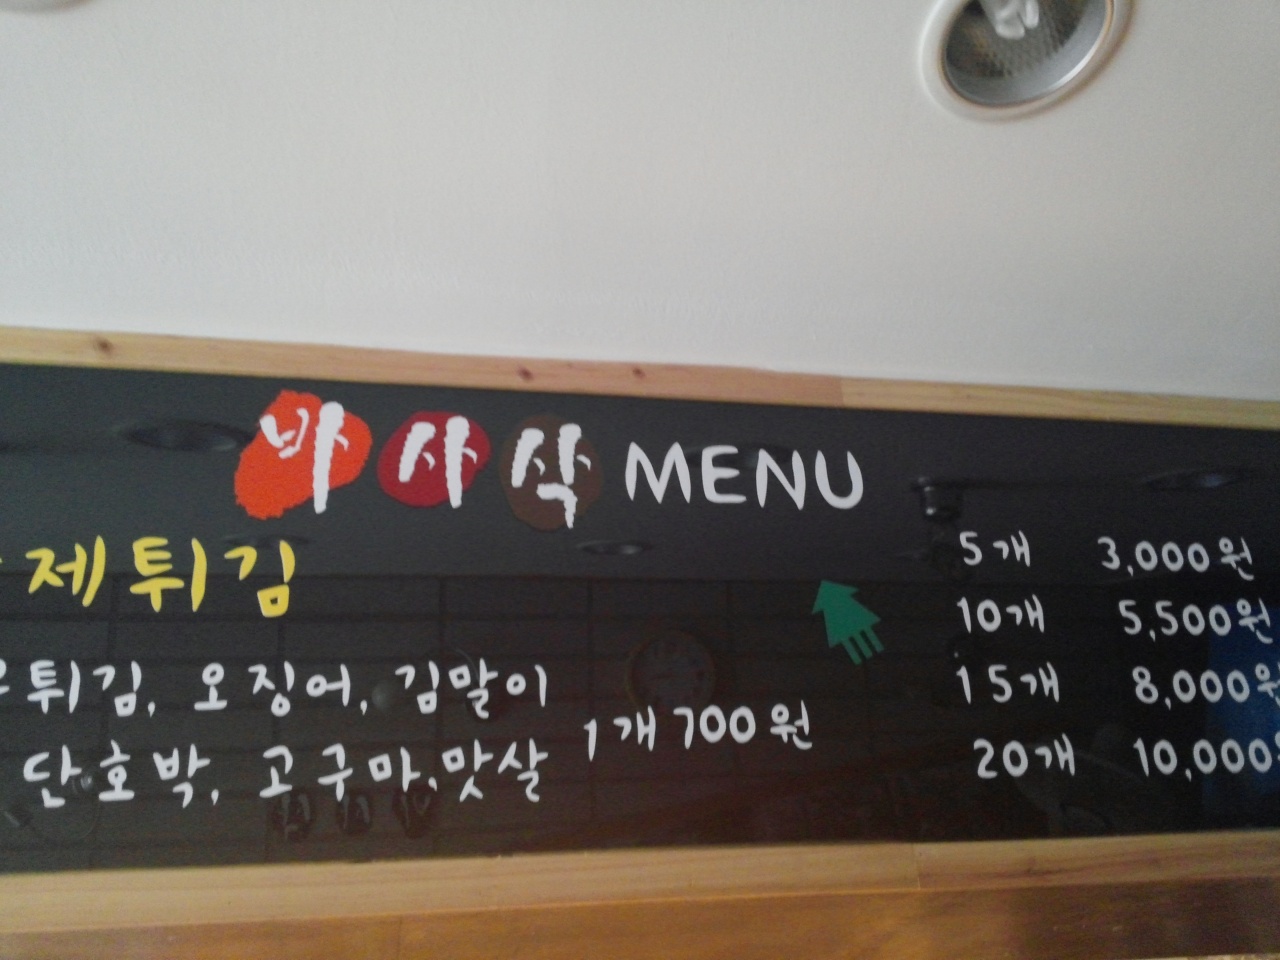 바사삭 MENU
제튀김
튀김, 오징어, 김말이
단호박, 고구마, 맛살
1개 700원
5개 3,000원
10개 5,500원
15개 8,000원
20개 10,000